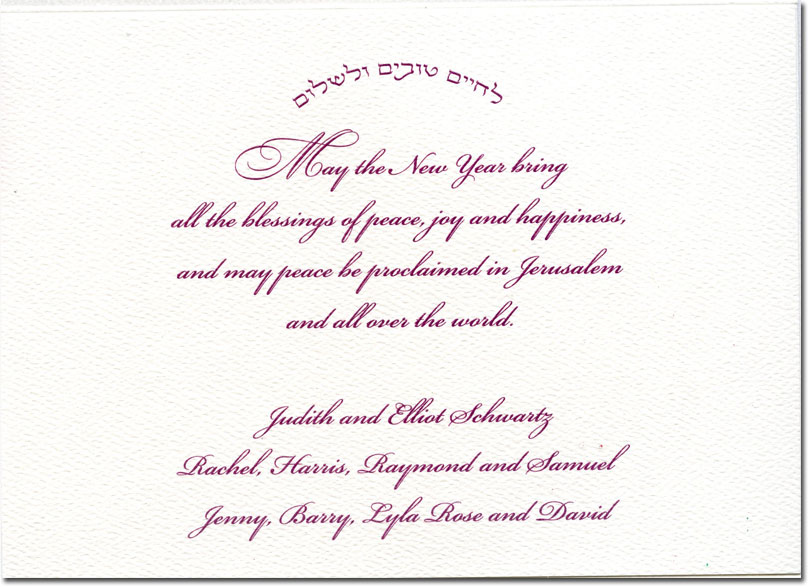 לחיים טובים ולשלום
May the New Year bring
all the blessings of peace, joy and happiness,
and may peace be proclaimed in Jerusalem
and all over the world.
Judith and Elliot Schwartz
Rachel, Harris, Raymond and Samuel
Jenny, Barry, Lyla Rose and David